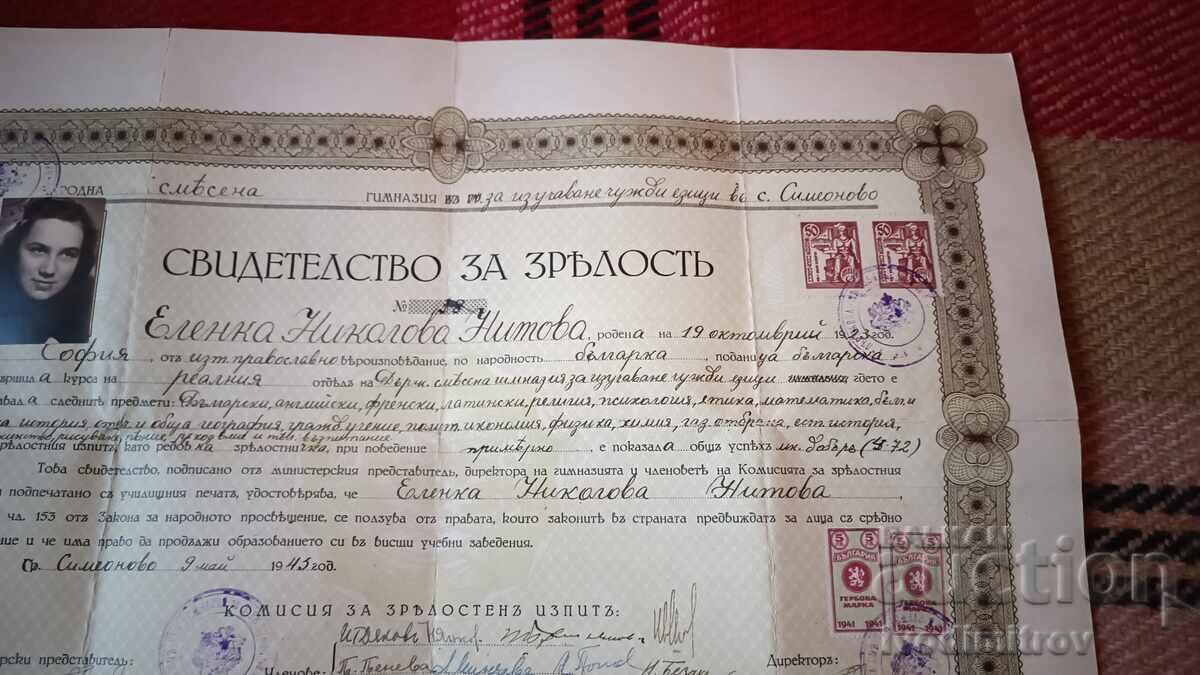 РОДНА смѣсена ГИМНАЗИЯ за изучаване чужди езици въ с. Симеоново
СВИДЕТЕЛСТВО ЗА ЗРѢЛОСТЬ
№ 28
Еленка Николова Нитова, родена на 19 октомврий 1923 год.
София, отъ изт. православно вѣроизповѣдание, по народность българка, поданица българска
вършила курса на реалния отдѣлъ на Държ. смѣсена гимназия за изучаване чужди езици гдето е
вала следнитѣ предмети: Български, английски, френски, латински, религия, психология, етика, математика, бълг. и
история, отеч. и обща география, гражд. учение, полит. икономия, физика, химия, газ. отбрана, ест. история,
рисуване, пѣние, възпитание
зрѣлостния изпитъ, като редовна зрѣлостничка, при поведение примѣрно, е показала общъ успѣхъ мн. добъръ (4.72)
Това свидетелство, подписано отъ министерския представитель, директора на гимназията и членоветѣ на Комисията за зрѣлостния
и подпечатано съ училищния печатъ, удостовѣрява, че Еленка Николова Нитова,
чл. 153 отъ Закона за народното просвѣщение, се ползува отъ правата, които законитѣ въ страната предвиждатъ за лица съ срѣдно
ние и че има право да продължи образованието си въ висши учебни заведения.
Гр. Симеоново 9 май 1943 год.
КОМИСИЯ ЗА ЗРѢЛОСТЕНЪ ИЗПИТЪ:
ерски представитель:
Членове:
Директоръ:
50
50
5 5
БЪЛГАРИЯ
ГЕРБОВА МАРКА
1941 1941
auction
ivodimitrov